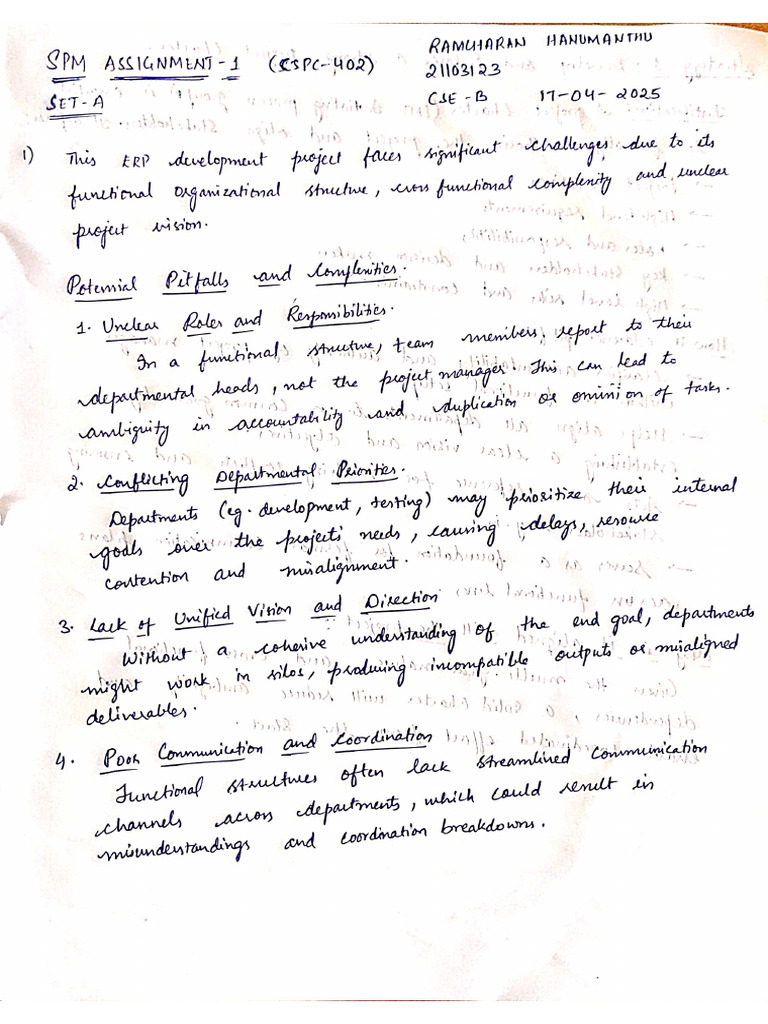 SPM ASSIGNMENT-1 (CSPC-402)
RAMCHARAN HANUMANTHU
21103123
SET-A
CSE-B 17-04-2025
1) This ERP development project faces significant challenges due to its
functional organizational structure, cross functional complexity and unclear
project vision.
Potential Pitfalls and Complexities.
1. Unclear Roles and Responsibilities.
In a functional structure, team members report to their
departmental heads, not the project manager. This can lead to
ambiguity in accountability and duplication or omission of tasks.
2. Conflicting Departmental Priorities.
Departments (eg. development, testing) may prioritize their internal
goals over the project's needs, causing delays, resource
contention and misalignment.
3. Lack of Unified Vision and Direction
Without a cohesive understanding of the end goal, departments
might work in silos, producing incompatible outputs or misaligned
deliverables.
4. Poor Communication and Coordination
Functional structures often lack streamlined communication
channels across departments, which could result in
misunderstandings and coordination breakdowns.